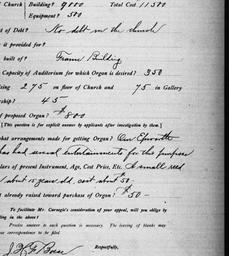 Church { Building? 9000 Total Cost 11500
Equipment? 500
t of Debt? No debt on the church
it provided for?
built of? Frame Building
Capacity of Auditorium for which Organ is desired? 350
ising 275 on floor of Church and 75 in Gallery
rship? 45
f proposed Organ? $800
[This question is for explicit answer by applicants after investigation by them.]
hat arrangements made for getting Organ? Our
has had several entertainments for this purpose
lars of present Instrument, Age, Cost Price, Etc. A small reed
about 15 years old, cost about $50.
t already raised toward purchase of Organ? $50—
To facilitate Mr. Carnegie's consideration of your appeal, will you oblige by
ling in the above!
Precise answer to each question is necessary. The leaving of blanks may
use correspondence to be filed.
Respectfully,